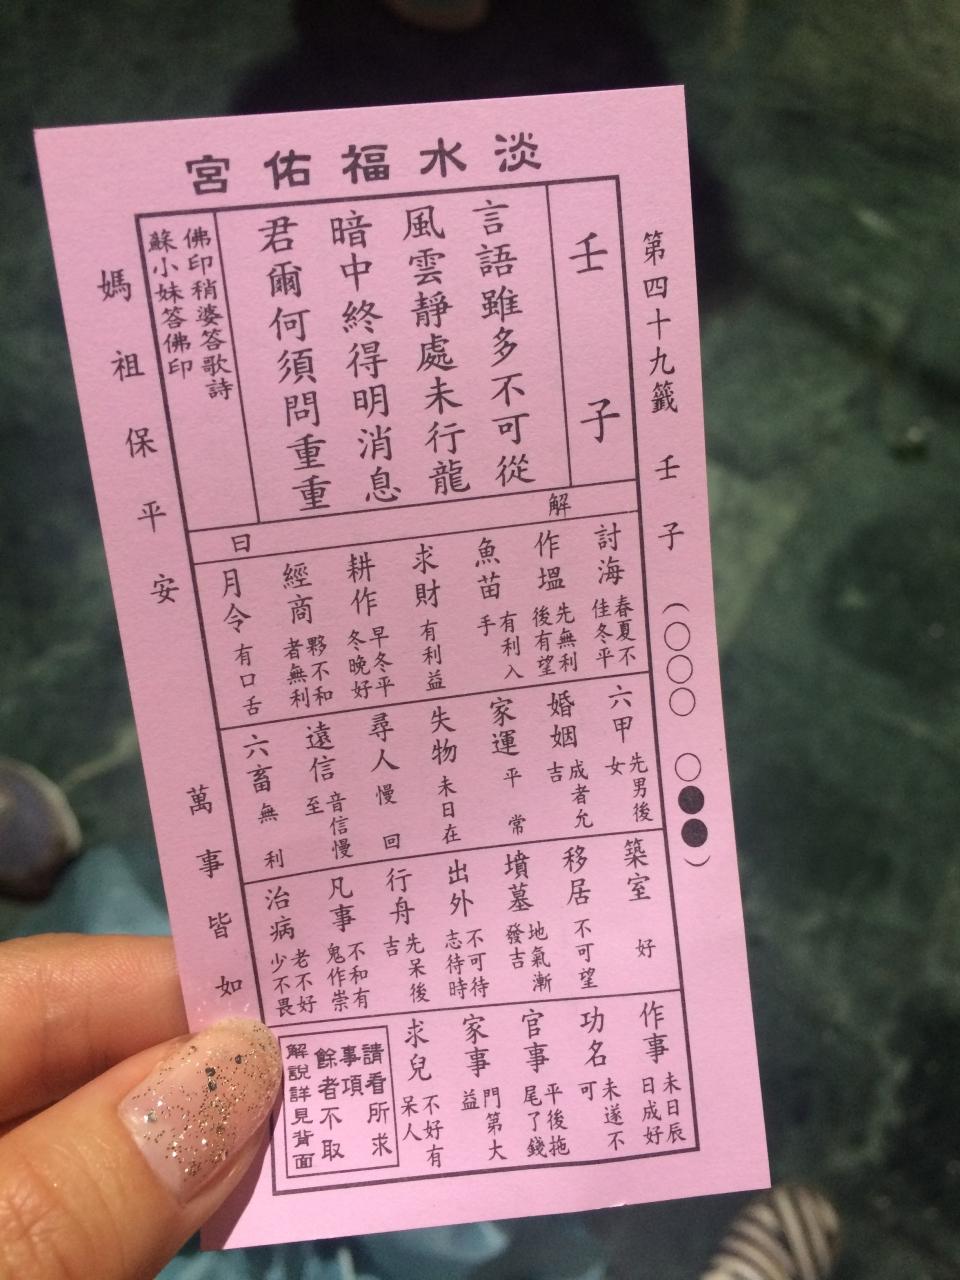 淡水福佑宮
第四十九籤 壬子 (○○○ ○●●)
壬子
言語雖多不可從
風雲靜處未行龍
暗中終得明消息
君爾何須問重重
佛印稍婆答歌詩
蘇小妹答佛印
解曰
討海 春夏不佳冬平
作塭 先無利後有望
魚苗 有利入手
求財 有利益
耕作 早冬平冬晚好
經商 夥不和者無利
月令 有口舌
六甲 先男後女
婚姻 成者允吉
家運 平常
失物 未日在
尋人 慢回
遠信 音信慢至
六畜 無利
築室 好
移居 不可望
墳墓 地氣漸發吉
出外 不可待志待時
行舟 先呆後吉
凡事 不和有鬼作崇
治病 老不好少不畏
作事 未日辰日成好
功名 未遂不可
官事 平後拖尾了錢
家事 門第大益
求兒 不好有呆人
請看所求
事項
餘者不取
解說詳見背面
媽祖保平安 萬事皆如